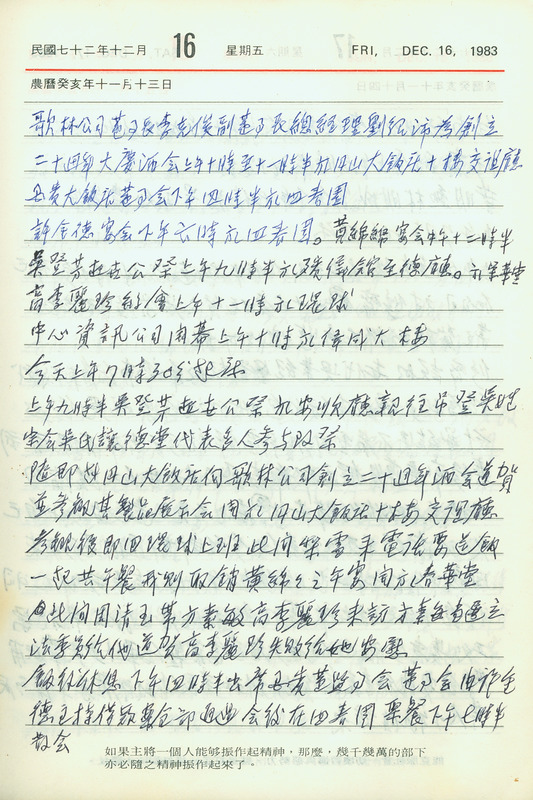 民國七十二年十二月 16 星期五 FRI, DEC. 16, 1983
農曆癸亥年十一月十三日
歌林公司董事長李克俊副董事長總經理劉紀沛為創立
二十週年大慶酒會上午十時至十一時半於圓山大飯店十樓交誼廳
大飯店董事會下午四時半於四春園
許金德宴会下午六時於四春園。黃綿綿宴会中午十二時半
吳登芳公祭上午九時半於殯儀館至德廳。
高李麗珍 會上午十一時於環球
中心資訊公司開幕上午十時於偉成大樓
今天上午7時30分起床
上午九時半吳登芳公祭 廳親往弔登吳姓
宗会吳氏讓德堂代表多人參与
隨即赴圓山大飯店向歌林公司創立二十週年酒会道賀
並參觀其製品展示会 於圓山大飯店十樓交誼廳
參觀後即回環球上班此間 雪來電話要送飯
一起共午餐我則取銷黃綿綿之午宴 春華堂
此間 方素敏高李麗珍來訪方素敏當選立
法委員給他道賀高李麗珍失敗給她安慰
飯後休息下午四時半出席 董監事会董事会由許金
德主持 全部通過会後在四春園 餐下午七時半
散会
如果主將一個人能够振作起精神，那麼，幾千幾萬的部下
亦必隨之精神振作起來了。